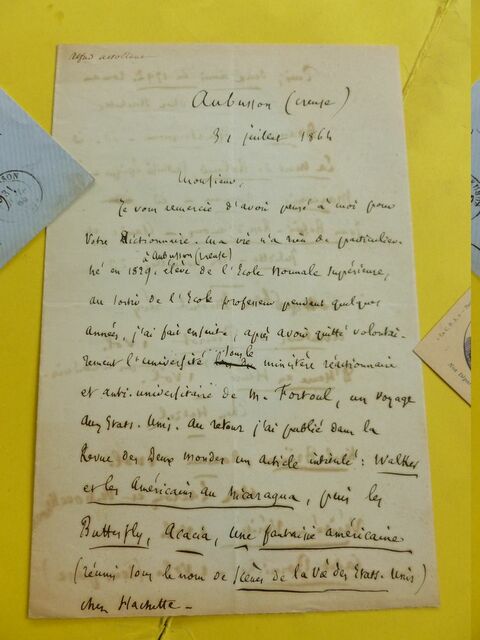 Alfred Assollant
Aubusson (Creuse)
31 juillet 1864
Monsieur,
Je vous remercie d'avoir pensé à moi pour
votre Dictionnaire. Ma vie n'a rien de particulier.
à Aubusson (Creuse)
Né en 1829. élève de l'Ecole Normale Supérieure,
au sortir de l'Ecole professeur pendant quelques
années, j'ai fait ensuite, après avoir quitté volontai-
rement l'université sous le ministère réactionnaire
et anti-universitaire de M. Fortoul, un voyage
aux Etats-Unis. Au retour j'ai publié dans la
Revue des Deux Mondes un article intitulé : Walker
et les Américains au Nicaragua, puis les
Butterfly, Acacia, une fantaisie américaine
(réunis sous le nom de Scènes de la Vie des Etats-Unis)
chez Hachette -